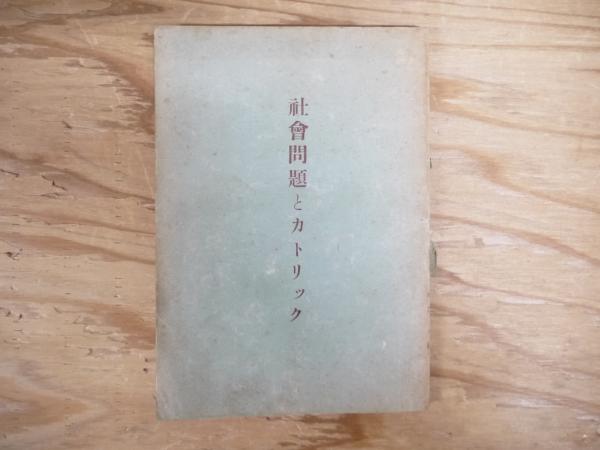 社會問題とカトリック